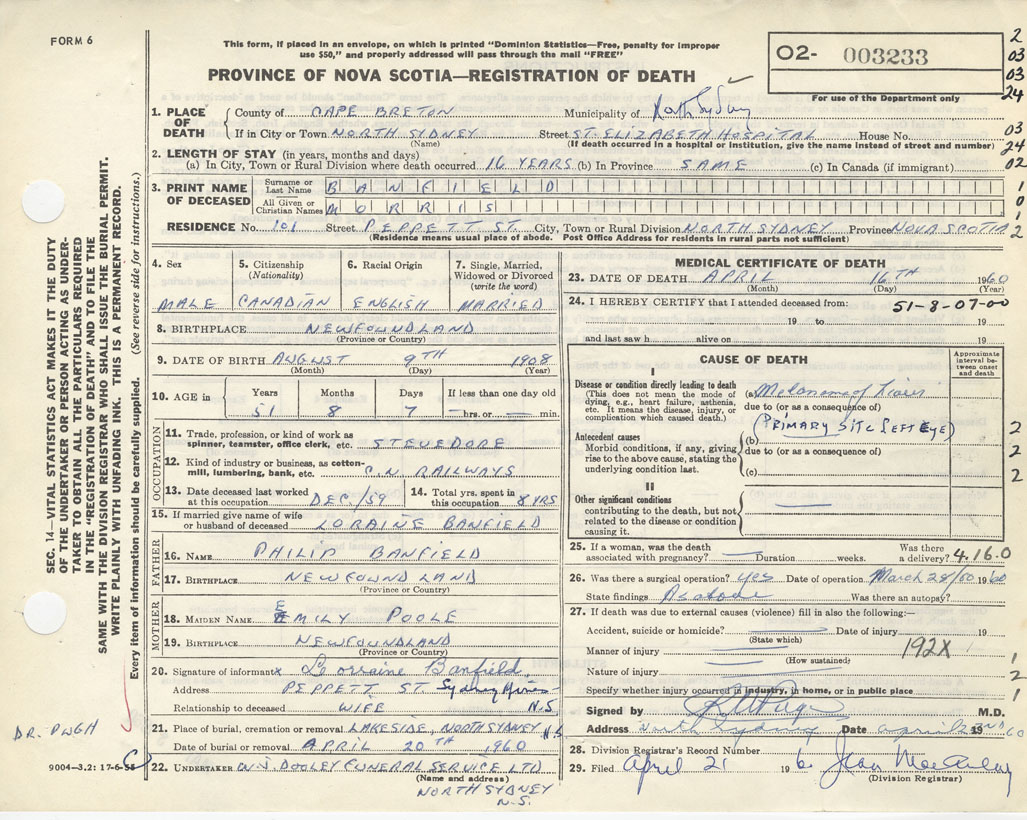 FORM 6
This form, if placed in an envelope, on which is printed "Dominion Statistics—Free, penalty for improper
use $50," and properly addressed will pass through the mail "FREE"
PROVINCE OF NOVA SCOTIA—REGISTRATION OF DEATH
O2- 003233
For use of the Department only
2
03
03
24
1. PLACE OF DEATH
County of CAPE BRETON Municipality of North Sydney
If in City or Town NORTH SYDNEY Street ST. ELIZABETH HOSPITAL House No.
(Name) (If death occurred in a hospital or institution, give the name instead of street and number)
03
24
02
2. LENGTH OF STAY (in years, months and days)
(a) In City, Town or Rural Division where death occurred 16 YEARS (b) In Province SAME (c) In Canada (if immigrant)
3. PRINT NAME OF DECEASED
Surname or Last Name BANFIELD
All Given or Christian Names MORRIS
1
0
1
2
RESIDENCE No. 101 Street PEPPETT ST. City, Town or Rural Division NORTH SYDNEY Province NOVA SCOTIA
(Residence means usual place of abode. Post Office Address for residents in rural parts not sufficient)
4. Sex
MALE
5. Citizenship
(Nationality)
CANADIAN
6. Racial Origin
ENGLISH
7. Single, Married,
Widowed or Divorced
(write the word)
MARRIED
8. BIRTHPLACE NEWFOUNDLAND
(Province or Country)
9. DATE OF BIRTH AUGUST 9TH 1908
(Month) (Day) (Year)
10. AGE in
Years Months Days If less than one day old
51 8 7 — hrs. or — min.
OCCUPATION
11. Trade, profession, or kind of work as
spinner, teamster, office clerk, etc. STEVEDORE
12. Kind of industry or business, as cotton-
mill, lumbering, bank, etc. C.N. RAILWAYS
13. Date deceased last worked
at this occupation DEC/59
14. Total yrs. spent in
this occupation 8 YRS
15. If married give name of wife
or husband of deceased LORAINE BANFIELD
FATHER
16. NAME PHILIP BANFIELD
17. BIRTHPLACE NEWFOUNDLAND
(Province or Country)
MOTHER
18. MAIDEN NAME EMILY POOLE
19. BIRTHPLACE NEWFOUNDLAND
(Province or Country)
20. Signature of informant x Lorraine Banfield
Address PEPPETT ST. Sydney Mines
Relationship to deceased WIFE N.S
21. Place of burial, cremation or removal LAKESIDE, NORTH SYDNEY N.S
Date of burial or removal APRIL 20TH 1960
22. UNDERTAKER W.J. DOOLEY FUNERAL SERVICE LTD
(Name and address)
NORTH SYDNEY
N.S.
MEDICAL CERTIFICATE OF DEATH
23. DATE OF DEATH APRIL 16TH 1960
(Month) (Day) (Year)
24. I HEREBY CERTIFY that I attended deceased from: 51-8-07-00
19 to 19
and last saw h alive on 19
CAUSE OF DEATH
Approximate
interval be-
tween onset
and death
I
Disease or condition directly leading to death
(This does not mean the mode of
dying, e.g., heart failure, asthenia,
etc. It means the disease, injury, or
complication which caused death.)
(a) Melanoma of Liver
due to (or as a consequence of)
Antecedent causes
Morbid conditions, if any, giving
rise to the above cause, stating the
underlying condition last.
(PRIMARY SITE LEFT EYE)
(b)
due to (or as a consequence of)
(c)
2
2
2
II
Other significant conditions
contributing to the death, but not
related to the disease or condition
causing it.
—
25. If a woman, was the death
associated with pregnancy? — Duration weeks. Was there
a delivery? 4.16.0
26. Was there a surgical operation? yes Date of operation March 28/60 1960
State findings As above Was there an autopsy?
27. If death was due to external causes (violence) fill in also the following:—
Accident, suicide or homicide? Date of injury 19
(State which)
Manner of injury 192X
(How sustained)
Nature of injury
Specify whether injury occurred in industry, in home, or in public place
1
2
1
Signed by M.D.
Address North Sydney Date April 1960
28. Division Registrar's Record Number
29. Filed April 21 196
(Division Registrar)
SEC. 14—VITAL STATISTICS ACT MAKES IT THE DUTY
OF THE UNDERTAKER OR PERSON ACTING AS UNDER-
TAKER TO OBTAIN ALL THE PARTICULARS REQUIRED
IN THE "REGISTRATION OF DEATH" AND TO FILE THE
SAME WITH THE DIVISION REGISTRAR WHO SHALL ISSUE THE BURIAL PERMIT.
WRITE PLAINLY WITH UNFADING INK. THIS IS A PERMANENT RECORD.
Every item of information should be carefully supplied. (See reverse side for instructions.)
DR. PUGH
9004—3.2: 17-6-